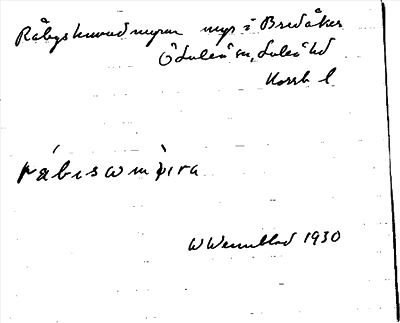 Råbyskuvudmyran myr i Bredåker
ÖLuleå sn, Luleå hd
Norrb l.
rábiswmỳra
W Wennblad 1930